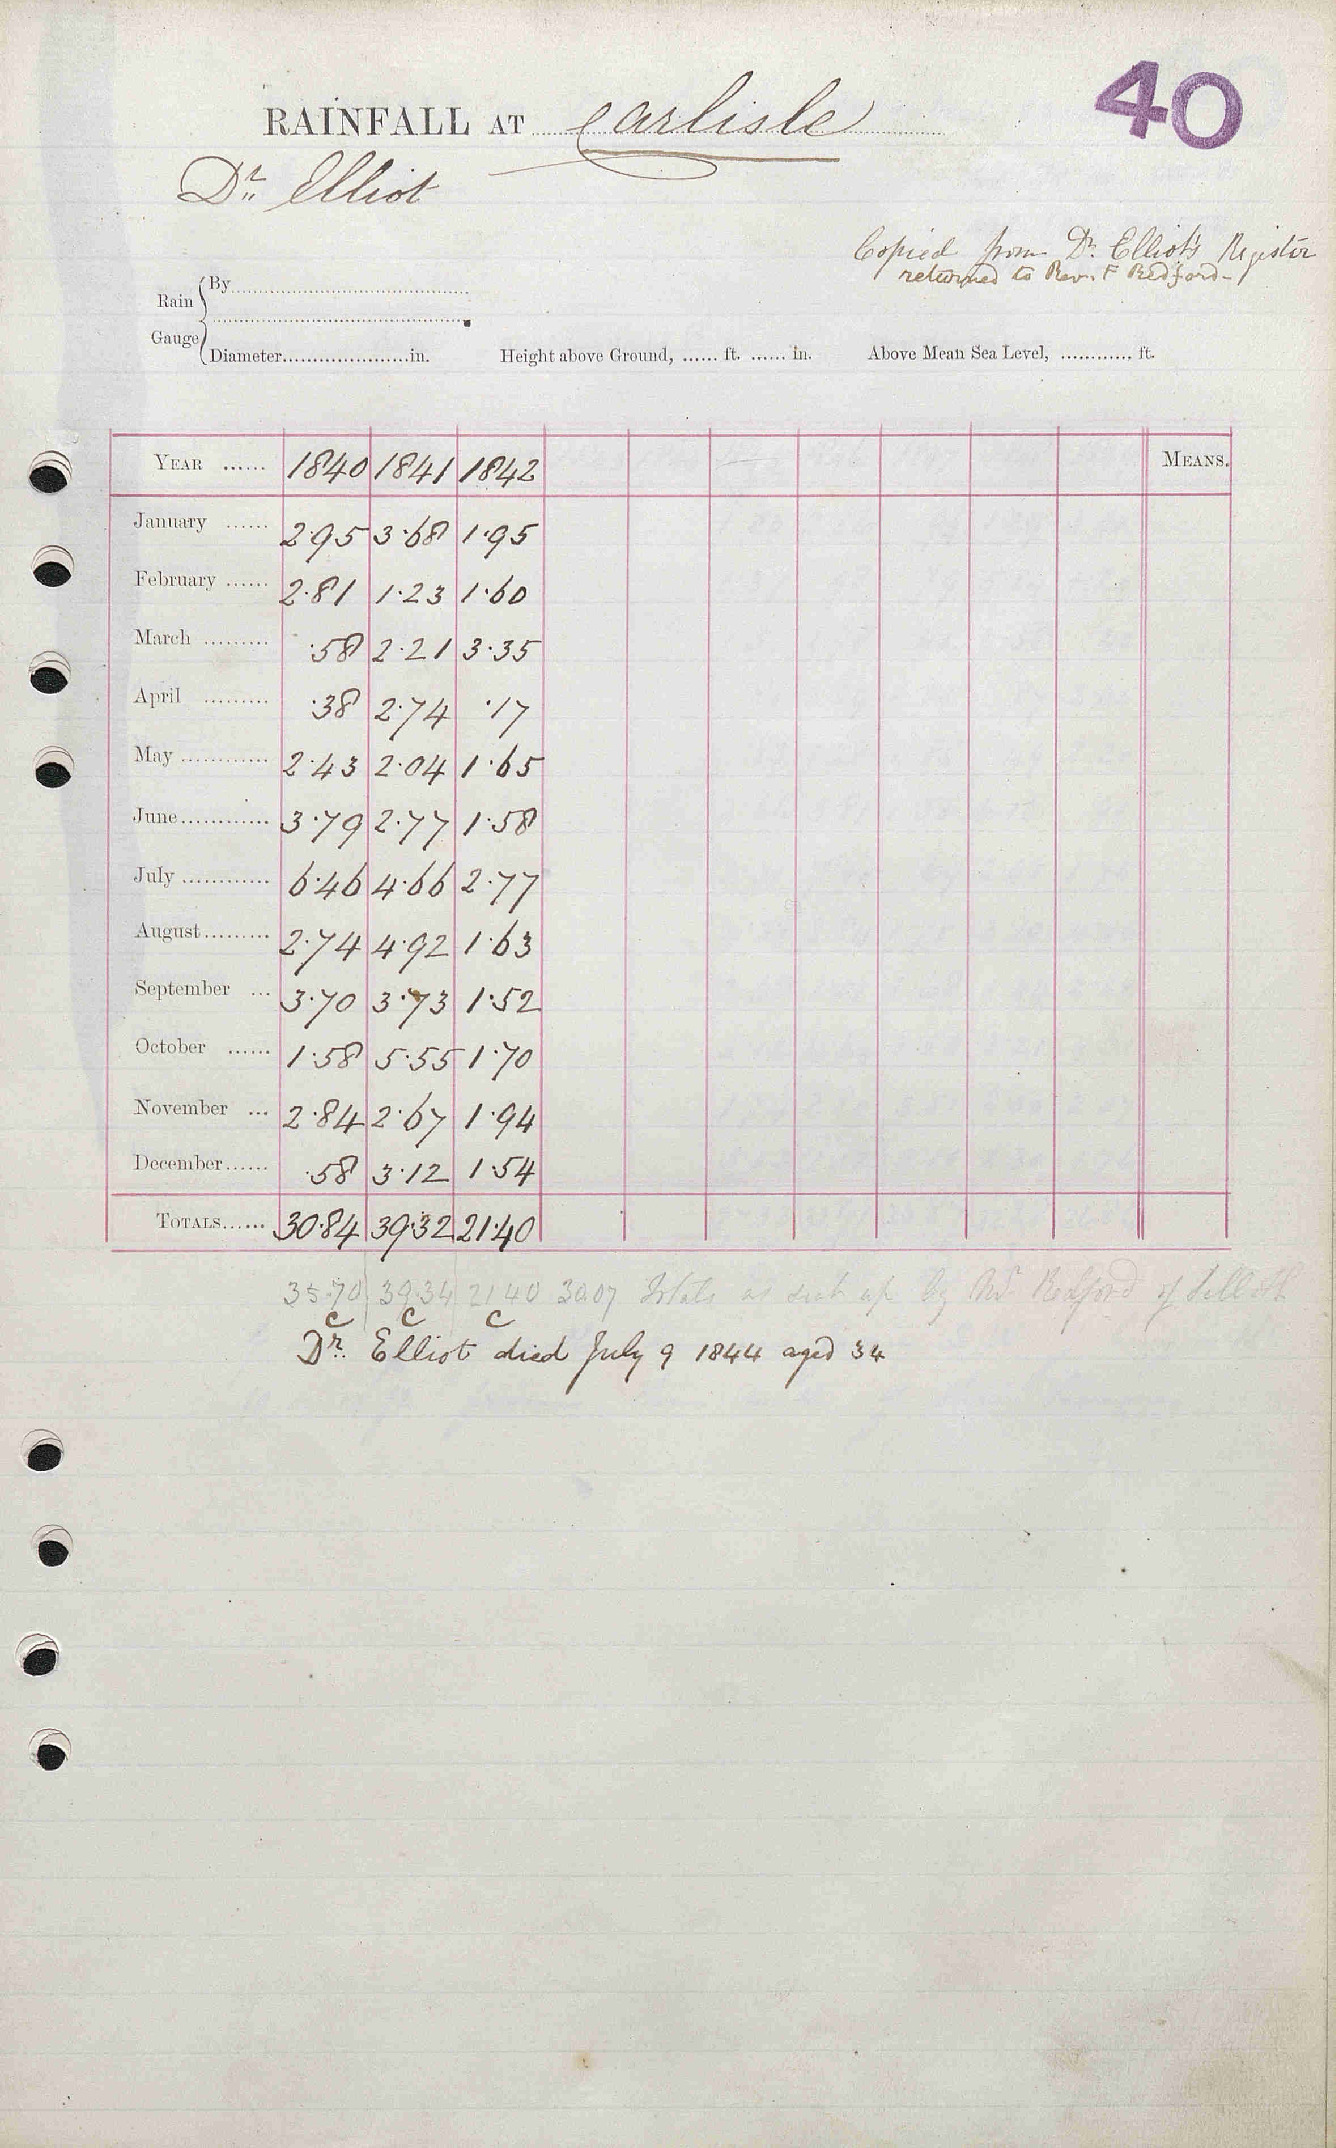 40
RAINFALL AT Carlisle
Dr. Elliot
Copied from Dr. Elliot's Register
returned to Rev. F Redford-
Rain Gauge
By
Diameter in. Height above Ground, ...... ft. ...... in. Above Mean Sea Level, ............ ft.
YEAR ...... 1840 1841 1842 MEANS.
January ...... 2.95 3.68 1.95
February ...... 2.81 1.23 1.60
March ......... .58 2.21 3.35
April ......... .38 2.74 .17
May ............ 2.43 2.04 1.65
June ............ 3.79 2.77 1.58
July ............ 6.46 4.66 2.77
August ......... 2.74 4.92 1.63
September ... 3.70 3.73 1.52
October ...... 1.58 5.55 1.70
November ... 2.84 2.67 1.94
December ...... .58 3.12 1.54
TOTALS ...... 30.84 39.32 21.40
35.70 39.34 21.40 30.07 Totals as sent up by Mr Redford of Silloth
c c c
Dr. Elliot died July 9 1844 aged 34